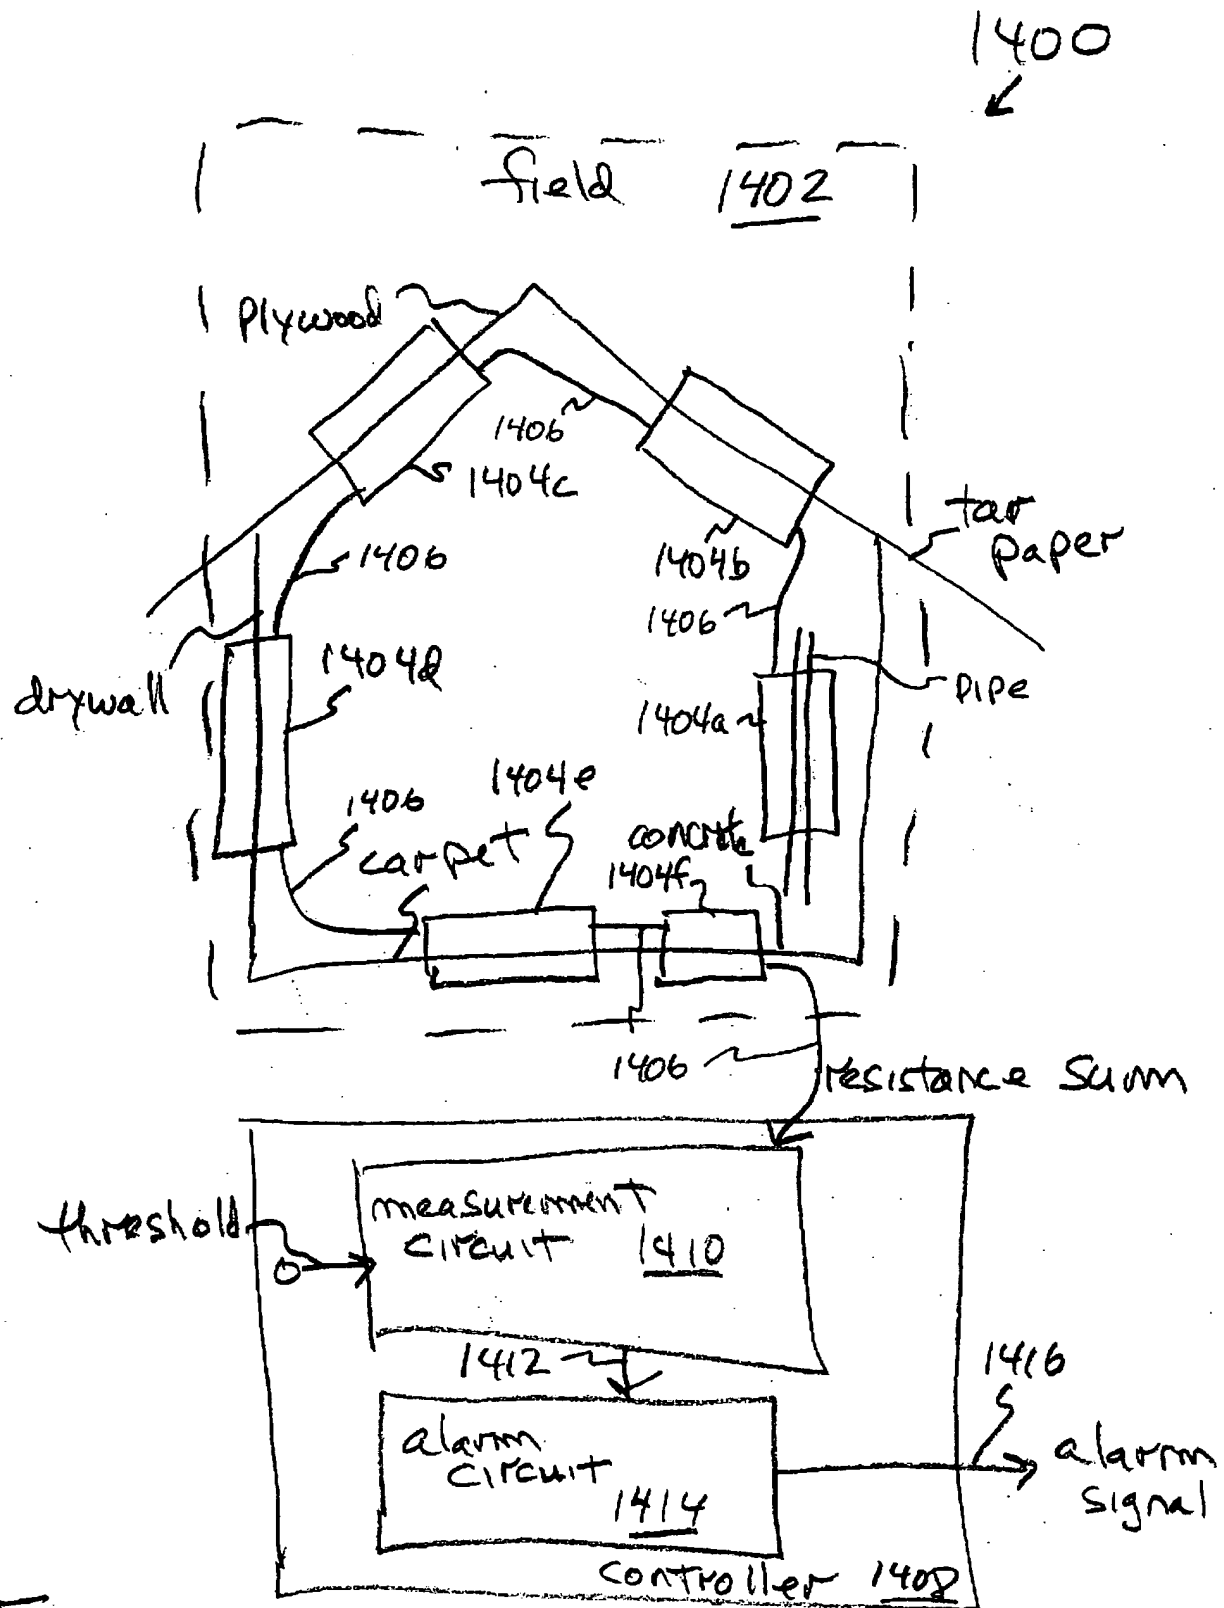 1400
field 1402
plywood
1406
1404c
tar
paper
1406
1404b
1406
drywall
1404d
pipe
1404a
1404e
1406
carpet
concrete
1404f
1406
resistance sum
threshold
measurement
circuit 1410
1412
1416
alarm
circuit
1414
alarm
signal
controller 1408